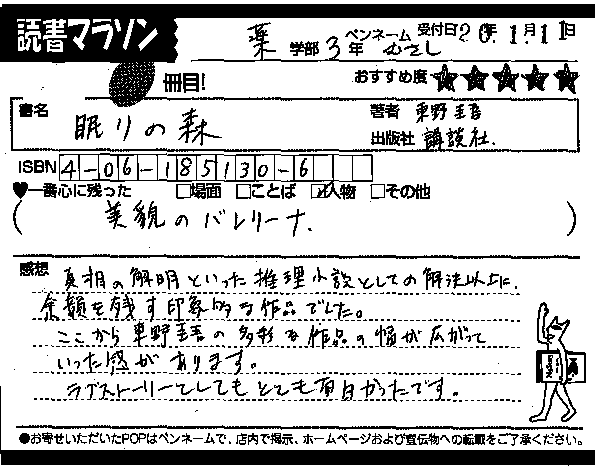 読書マラソン
薬 学部 3年 ペンネーム むさし 受付日 20年 1月11日
冊目!
おすすめ度 ★★★★★
書名 眠りの森
著者 東野圭吾
出版社 講談社.
ISBN 4-06-185130-6
♥一番心に残った □場面 □ことば ☑人物 □その他
( 美貌のバレリーナ. )
感想 真相の解明といった推理小説としての解決以上に、
余韻を残す印象的な作品でした。
ここから東野圭吾の多彩な作品の幅が広がって
いった感があります。
ラブストーリーとしてもとても面白かったです。
●お寄せいただいたPOPはペンネームで、店内で掲示、ホームページおよび宣伝物への転載をご了承ください。